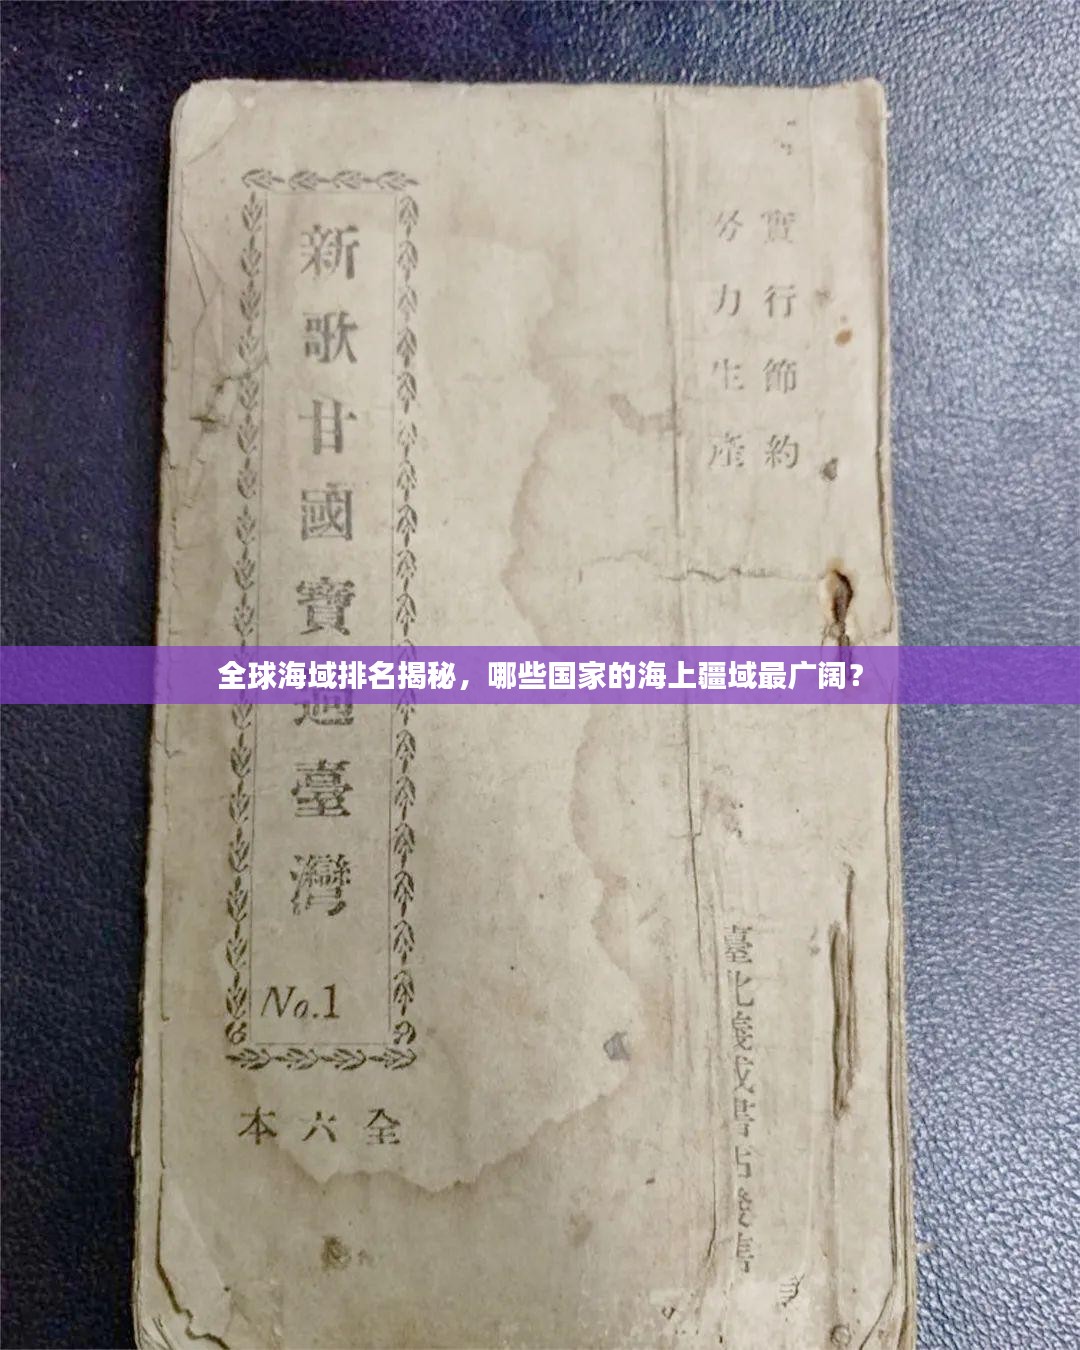 實行節約
努力生產
臺北義成書店發售
新歌甘國寶過臺灣
No.1
全六本
全球海域排名揭秘，哪些国家的海上疆域最广阔？